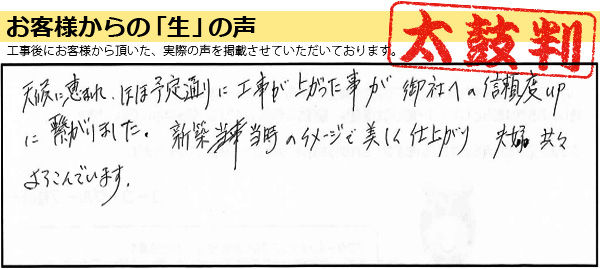 お客様からの「生」の声
工事後にお客様から頂いた、実際の声を掲載させていただいております。
太鼓判
天候に恵まれ、ほぼ予定通りに工事が上がった事が御社への信頼度up
に繋がりました。新築当時のイメージで美しく仕上がり 夫婦共々
よろこんでいます。